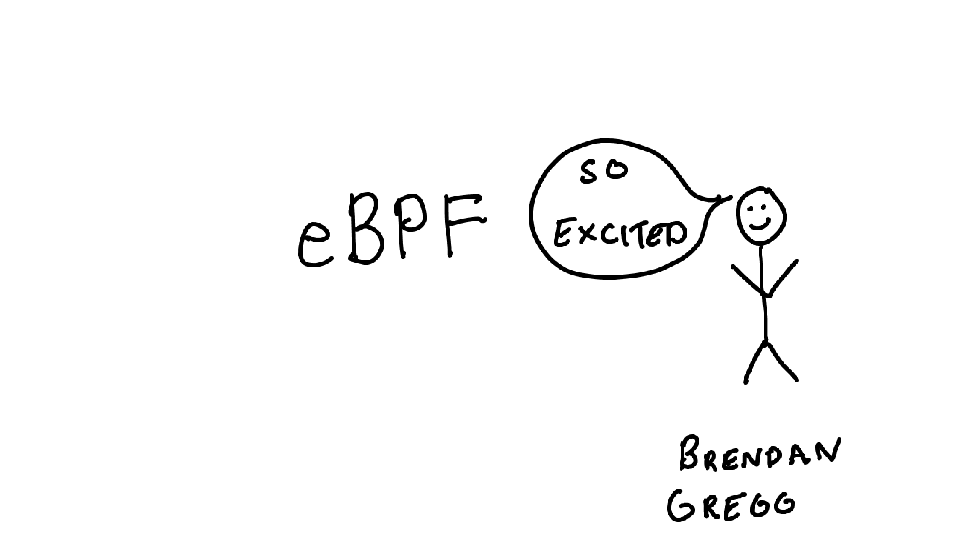 eBPF
SO
EXCITED
BRENDAN
GREGG